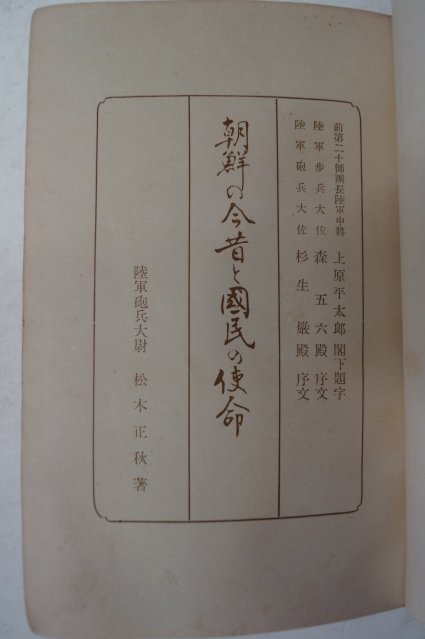 前第二十師團長陸軍中將 上原平太郎 閣下題字
陸軍步兵大佐 森五六殿 序文
陸軍砲兵大佐 杉生巖殿 序文
朝鮮の今昔と國民の使命
陸軍砲兵大尉 松木正秋著